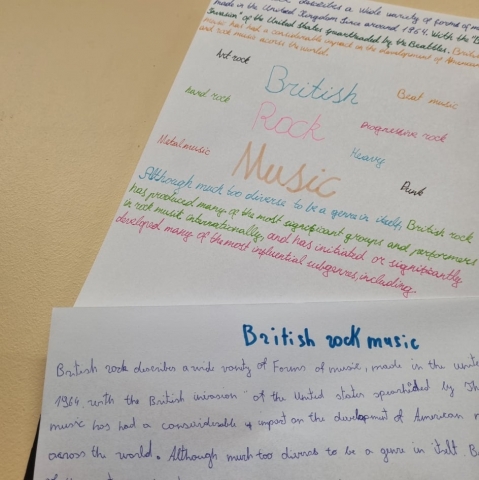 describes a whole variety of forms of
made in the United Kingdom since around 1964. With the "B
Invasion" of the United States spearheaded by the Beatles. British
music has had a considerable impact on the development of American
and rock music across the world.
Art rock
British
Beat music
Hard rock
Rock
Progressive rock
Metal music
Heavy
Music
Punk
Although much too diverse to be a genre in itself, British rock
has produced many of the most significant groups and performers
in rock music internationally, and has initiated or significantly
developed many of the most influential subgenres, including
British rock music
British rock describes a wid varity of Forms of music, made in the unite
1964. with the British invasion" of the United states spearheded by Th
music has had a considerable impact on the development of American
across the world. Although much too divers to be a genre in itselt. B